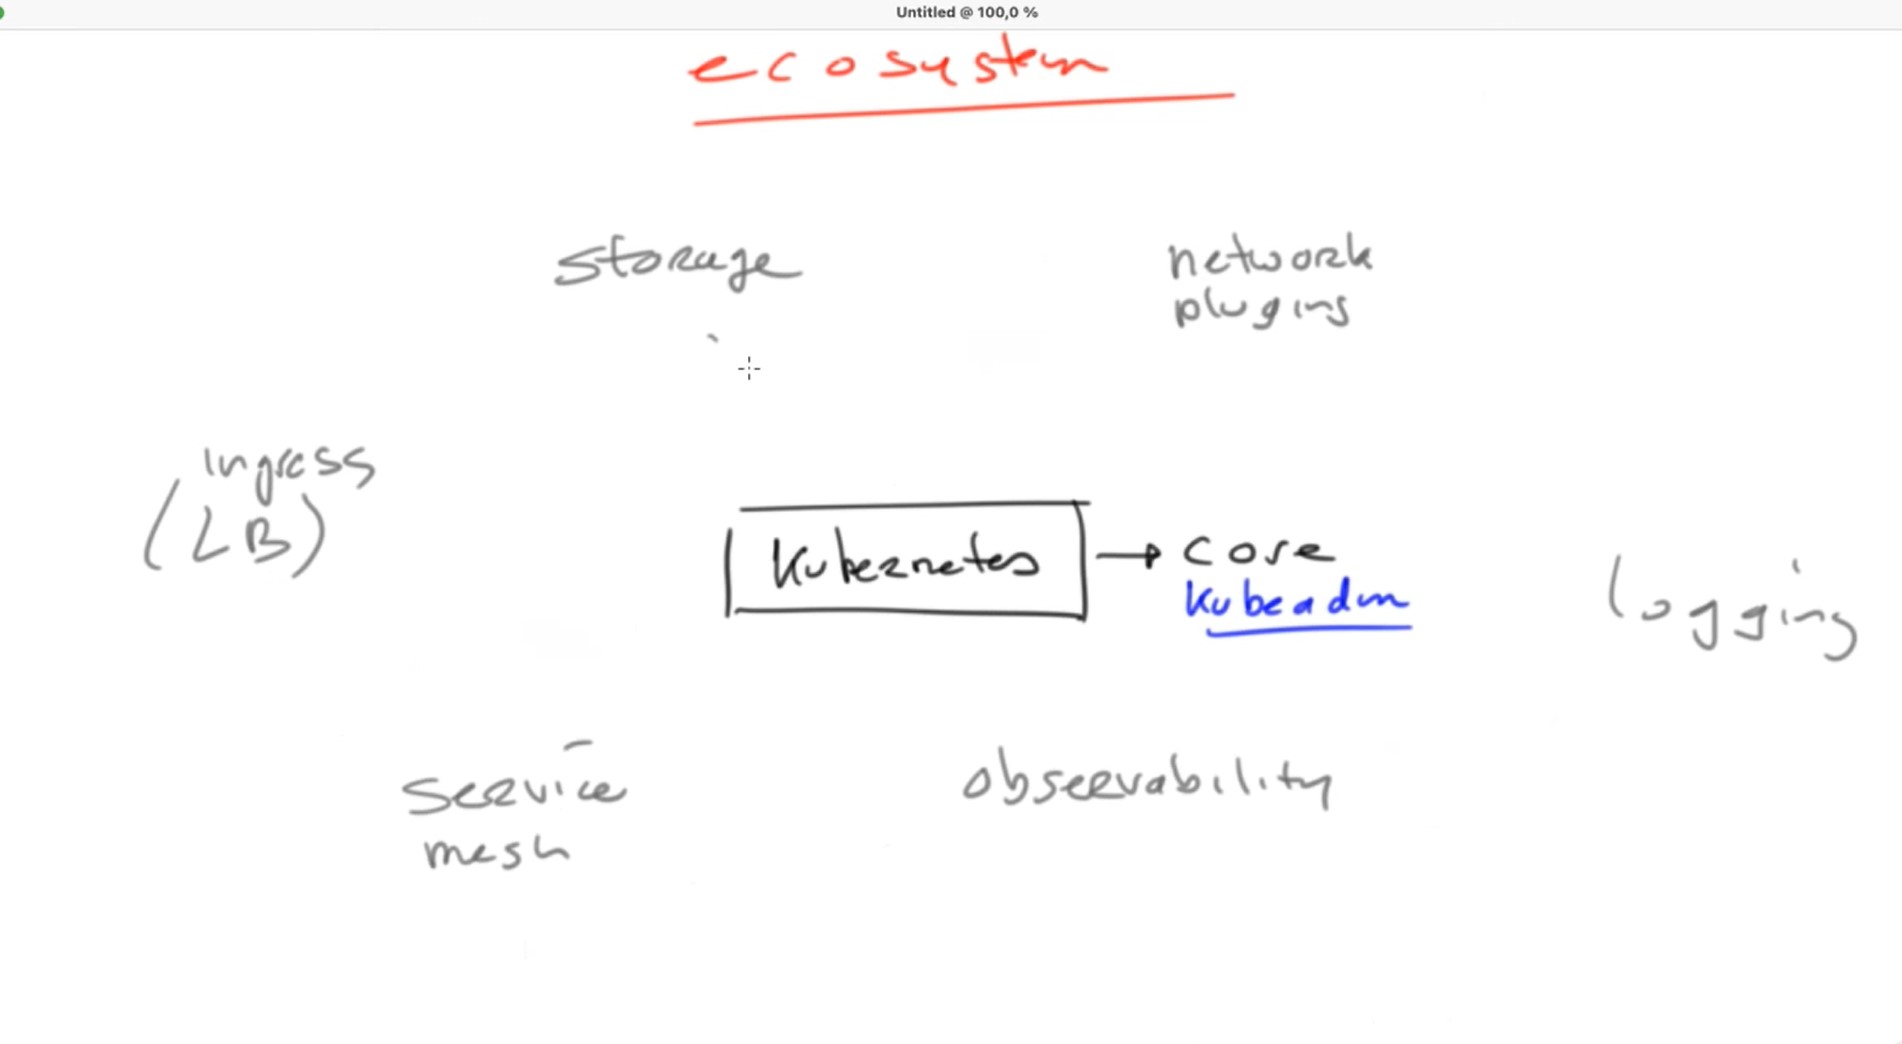 Untitled @ 100,0 %
ecosystem
storage
network
plugins
ingress
(LB)
Kubernetes
core
Kubeadm
logging
service
mesh
observability